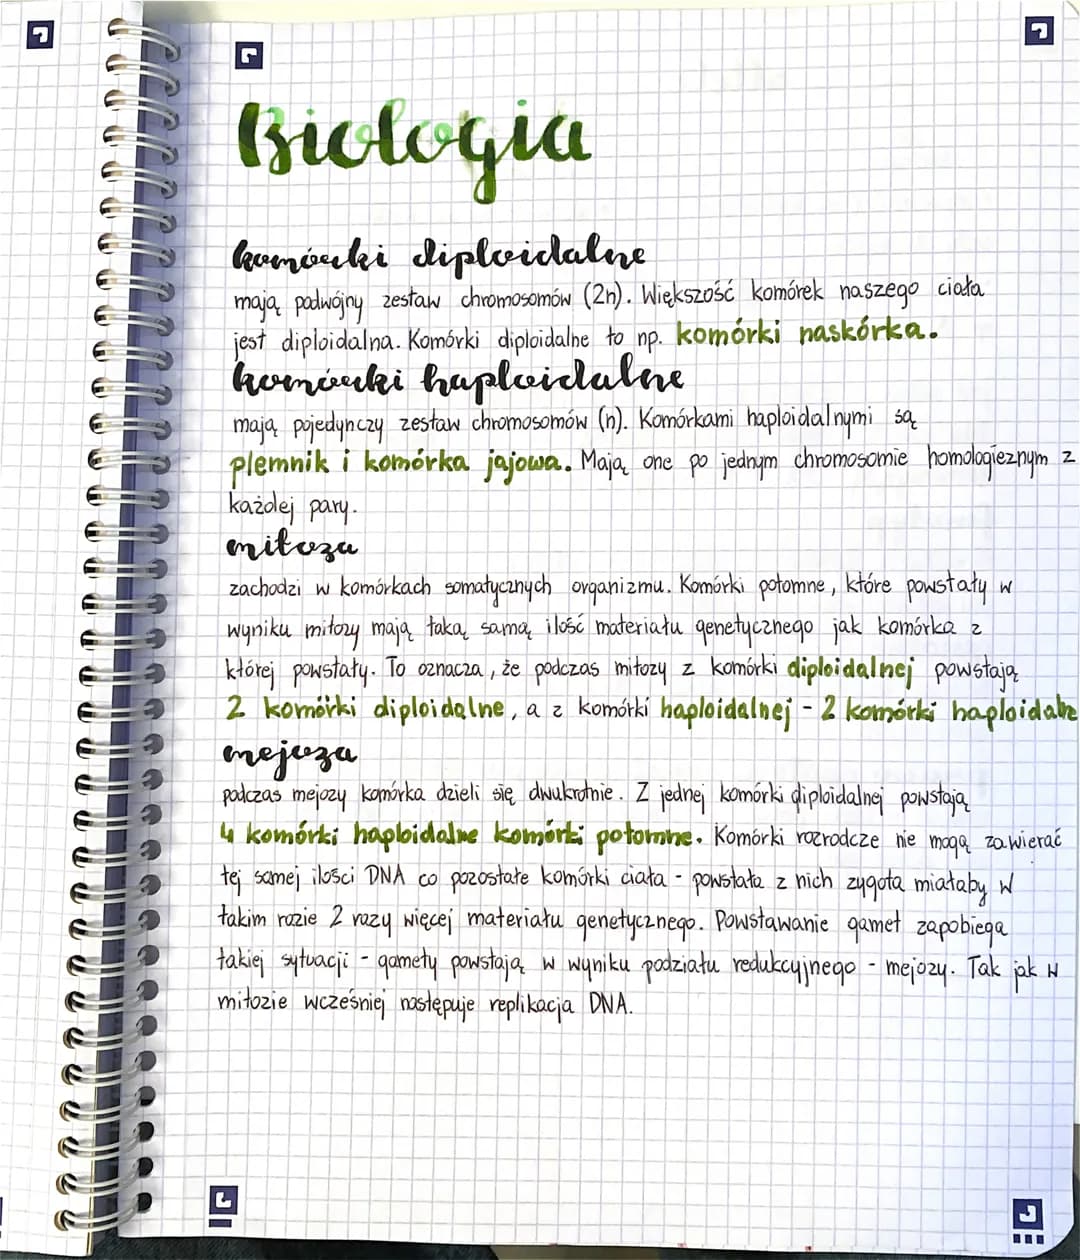 Biologia
komórki diploidalne
mają podwójny zestaw chromosomów (2n). Większość komórek naszego ciała
jest diploidalna. Komórki diploidalne to np. komórki naskórka.
komórki haploidalne
mają pojedynczy zestaw chromosomów (n). Komórkami haploidalnymi są
plemnik i komórka jajowa. Mają one po jednym chromosomie homologicznym z
każdej pary.
mitoza
zachodzi w komórkach somatycznych organizmu. Komórki potomne, które powstały w
wyniku mitozy mają taką samą ilość materiału genetycznego jak komórka z
której powstały. To oznacza, że podczas mitozy z komórki diploidalnej powstają
2 komórki diploidalne, a z komórki haploidalnej - 2 komórki haploidalne
mejoza
podczas mejozy komórka dzieli się dwukrotnie. Z jednej komórki diploidalnej powstają
4 komórki haploidalne komórki potomne. Komórki rozrodcze nie mogą zawierać
tej samej ilości DNA co pozostałe komórki ciała - powstała z nich zygota miałaby w
takim razie 2 razy więcej materiału genetycznego. Powstawanie gamet zapobiega
takiej sytuacji - gamety powstają w wyniku podziału redukcyjnego - mejozy. Tak jak w
mitozie wcześniej następuje replikacja DNA.